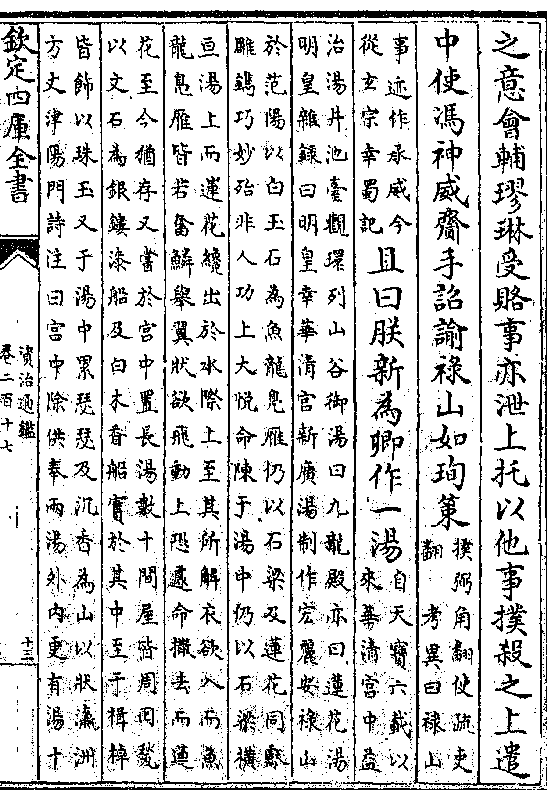 之意會輔璆琳受賂事亦泄上托以他事撲殺之上遣
中使馮神威齎手詔諭禄山如珣策
撲弼角翻使疏吏
翻　考異曰禄山
事迹作承威今
從玄宗幸蜀記
且曰朕新為卿作一湯
自天寶六載以
來華清宫中益
治湯井池臺觀環列山谷御湯曰九龍殿亦曰蓮花湯
明皇雜録曰明皇幸華清宫新廣湯制作宏麗安禄山
於范陽以白玉石為魚龍鳧雁仍以石梁及蓮花同獻
雕鐫巧妙殆非人功上大悦命陳于湯中仍以石梁横
亘湯上而蓮花纔出於水際上至其所解衣欲入而魚
龍鳧雁皆若奮鱗舉翼狀欲飛動上恐遽命撤去而蓮
花至今猶存又嘗於宫中置長湯數十間屋皆周回甃
以文石為銀鏤漆船及白木香船寘於其中至于楫棹
皆飾以珠玉又于湯中累瑟瑟及沉香為山以狀瀛洲
方丈律陽門詩注曰宫中除供奉兩湯外内更有湯十
欽定四庫全書
資治通鑑
卷二百十七
十三